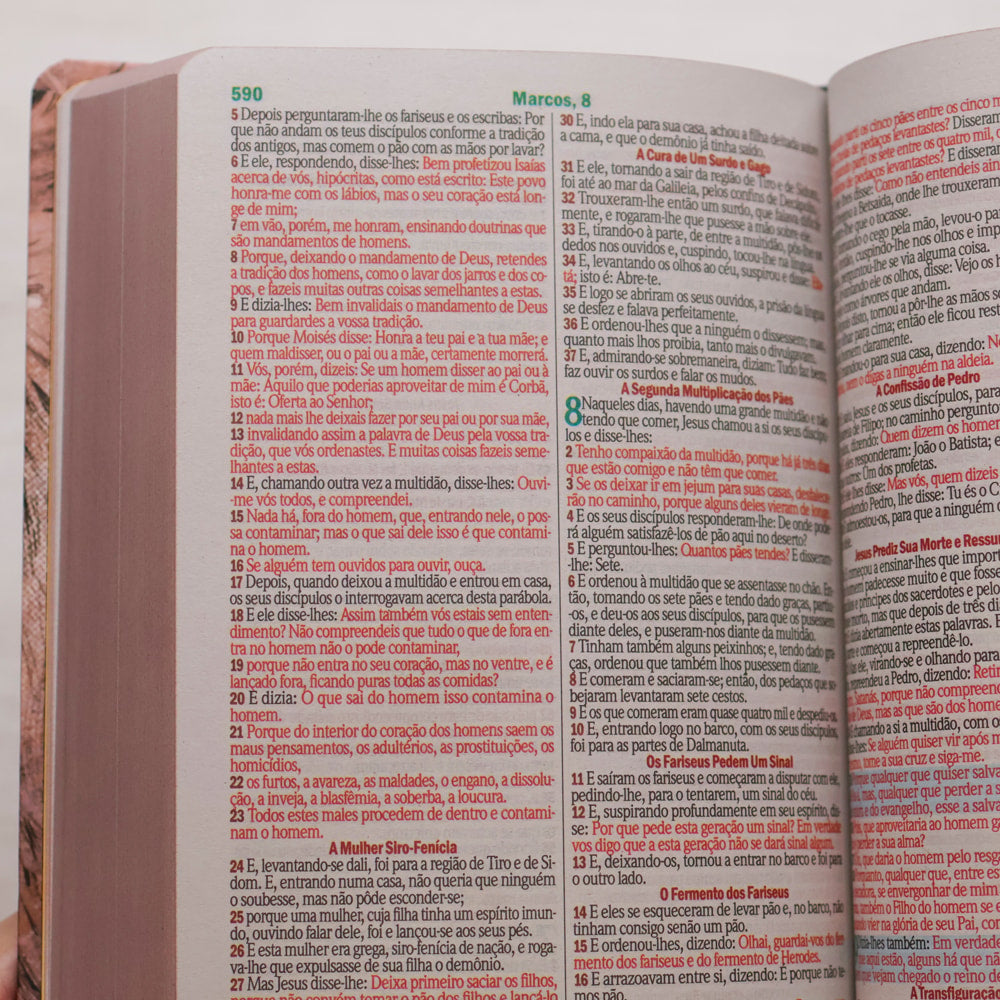 590
Marcos, 8
5 Depois perguntaram-lhe os fariseus e os escribas: Por
que não andam os teus discípulos conforme a tradição
dos antigos, mas comem o pão com as mãos por lavar?
6 E ele, respondendo, disse-lhes: Bem profetizou Isaías
acerca de vós, hipócritas, como está escrito: Este povo
honra-me com os lábios, mas o seu coração está lon-
ge de mim;
7 em vão, porém, me honram, ensinando doutrinas que
são mandamentos de homens.
8 Porque, deixando o mandamento de Deus, retendes
a tradição dos homens, como o lavar dos jarros e dos co-
pos, e fazeis muitas outras coisas semelhantes a estas.
9 E dizia-lhes: Bem invalidais o mandamento de Deus
para guardardes a vossa tradição.
10 Porque Moisés disse: Honra a teu pai e a tua mãe; e
quem maldisser, ou o pai ou a mãe, certamente morrerá.
11 Vós, porém, dizeis: Se um homem disser ao pai ou à
mãe: Aquilo que poderias aproveitar de mim é Corbã,
isto é: Oferta ao Senhor;
12 nada mais lhe deixais fazer por seu pai ou por sua mãe,
13 invalidando assim a palavra de Deus pela vossa tra-
dição, que vós ordenastes. E muitas coisas fazeis seme-
lhantes a estas.
14 E, chamando outra vez a multidão, disse-lhes: Ouvi-
-me vós todos, e compreendei.
15 Nada há, fora do homem, que, entrando nele, o pos-
sa contaminar; mas o que sai dele isso é que contami-
na o homem.
16 Se alguém tem ouvidos para ouvir, ouça.
17 Depois, quando deixou a multidão e entrou em casa,
os seus discípulos o interrogavam acerca desta parábola.
18 E ele disse-lhes: Assim também vós estais sem enten-
dimento? Não compreendeis que tudo o que de fora en-
tra no homem não o pode contaminar,
19 porque não entra no seu coração, mas no ventre, e é
lançado fora, ficando puras todas as comidas?
20 E dizia: O que sai do homem isso contamina o
homem.
21 Porque do interior do coração dos homens saem os
maus pensamentos, os adultérios, as prostituições, os
homicídios,
22 os furtos, a avareza, as maldades, o engano, a dissolu-
ção, a inveja, a blasfêmia, a soberba, a loucura.
23 Todos estes males procedem de dentro e contami-
nam o homem.
A Mulher Siro-Fenícia
24 E, levantando-se dali, foi para a região de Tiro e de Si-
dom. E, entrando numa casa, não queria que ninguém
o soubesse, mas não pôde esconder-se;
25 porque uma mulher, cuja filha tinha um espírito imun-
do, ouvindo falar dele, foi e lançou-se aos seus pés.
26 E esta mulher era grega, siro-fenícia de nação, e roga-
va-lhe que expulsasse de sua filha o demônio.
27 Mas Jesus disse-lhe: Deixa primeiro saciar os filhos,
porque não convém tomar o pão dos filhos e lançá-lo
30 E, indo ela para sua casa, achou a filha deitada sobre
a cama, e que o demônio já tinha saído.
A Cura de Um Surdo e Gago
31 E ele, tornando a sair da região de Tiro e de Sidom,
foi até ao mar da Galileia, pelos confins de Decápolis.
32 Trouxeram-lhe então um surdo, que falava
mente, e rogaram-lhe que pusesse a mão sobre ele.
33 E, tirando-o à parte, de entre a multidão, pôs-lhe os
dedos nos ouvidos e, cuspindo, tocou-lhe na língua.
34 E, levantando os olhos ao céu, suspirou e disse: Efa-
tá; isto é: Abre-te.
35 E logo se abriram os seus ouvidos, a prisão da língua
se desfez e falava perfeitamente.
36 E ordenou-lhes que a ninguém o dissessem; mas,
quanto mais lhos proibia, tanto mais o divulgavam.
37 E, admirando-se sobremaneira, diziam: Tudo faz bem:
faz ouvir os surdos e falar os mudos.
A Segunda Multiplicação dos Pães
8 Naqueles dias, havendo uma grande multidão e não
tendo que comer, Jesus chamou a si os seus discípu-
los e disse-lhes:
2 Tenho compaixão da multidão, porque há já três dias
que estão comigo e não têm que comer.
3 Se os deixar ir em jejum para suas casas, desfalece-
rão no caminho, porque alguns deles vieram de longe.
4 E os seus discípulos responderam-lhe: De onde pode-
rá alguém satisfazê-los de pão aqui no deserto?
5 E perguntou-lhes: Quantos pães tendes? E disseram-
-lhe: Sete.
6 E ordenou à multidão que se assentasse no chão. En-
tão, tomando os sete pães e tendo dado graças, partiu-
-os, e deu-os aos seus discípulos, para que os pusessem
diante deles, e puseram-nos diante da multidão.
7 Tinham também alguns peixinhos; e, tendo dado gra-
ças, ordenou que também lhos pusessem diante.
8 E comeram e saciaram-se; então, dos pedaços que so-
bejaram levantaram sete cestos.
9 E os que comeram eram quase quatro mil e despediu-os.
10 E, entrando logo no barco, com os seus discípulos,
foi para as partes de Dalmanuta.
Os Fariseus Pedem Um Sinal
11 E saíram os fariseus e começaram a disputar com ele,
pedindo-lhe, para o tentarem, um sinal do céu.
12 E, suspirando profundamente em seu espírito, dis-
se: Por que pede esta geração um sinal? Em verdade
vos digo que a esta geração não se dará sinal algum.
13 E, deixando-os, tornou a entrar no barco e foi para
o outro lado.
O Fermento dos Fariseus
14 E eles se esqueceram de levar pão e, no barco, não
tinham consigo senão um pão.
15 E ordenou-lhes, dizendo: Olhai, guardai-vos do fer-
mento dos fariseus e do fermento de Herodes.
16 E arrazoavam entre si, dizendo: É porque não te-
mos pão.
parti os cinco pães entre os cinco
de pedaços levantastes? Disseram
parti os sete entre os quatro mil,
de pedaços levantastes? E disseram
disse: Como não entendeis
a Betsaida, onde lhe trouxeram
que o tocasse.
o cego pela mão, levou-o
cuspindo-lhe nos olhos e
perguntou-lhe se via alguma coisa.
ele os olhos, disse: Vejo os
como árvores que andam.
disto, tornou a pôr-lhe as mãos
para cima; então ele ficou
claramente.
para sua casa, dizendo:
nem o digas a ninguém na aldeia.
A Confissão de Pedro
Jesus e os seus discípulos, para
de Filipo; no caminho
dizendo: Quem dizem os
responderam: João o Batista; e
Um dos profetas.
lhes disse: Mas vós, quem dizeis
Pedro, lhe disse: Tu és o
admoestou-os, para que a ninguém
Jesus Prediz Sua Morte e
começou a ensinar-lhes que
padecesse muito e que fosse
e príncipes dos sacerdotes e pelos
morto, mas que depois de três
abertamente estas palavras. E
e começou a repreendê-lo.
ele, virando-se e olhando para
repreendeu a Pedro, dizendo:
Satanás, porque não
Deus, mas as que são dos
chamando a si a multidão, com os
Se alguém quiser vir após
tome a sua cruz e siga-me.
qualquer que quiser salvar
mas, qualquer que perder a
e do evangelho, esse a
que aproveitaria ao homem
perder a sua alma?
que daria o homem pelo
qualquer que, entre
se envergonhar de mim
também o Filho do homem se
vier na glória de seu Pai,
também: Em verdade
aqui estão, alguns há que
vejam chegado o reino de
A Transfiguração